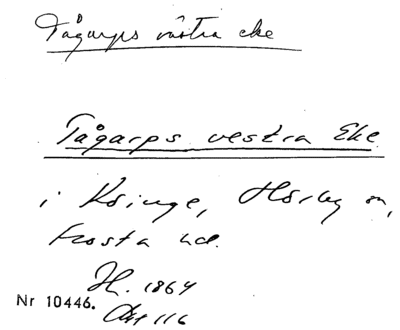 Tågarps västra eke
Tågarps vestra Eke
i Ksinge, Hörby sn,
Frosta hd.
H. 1864
Nr 10446.
Akt 116